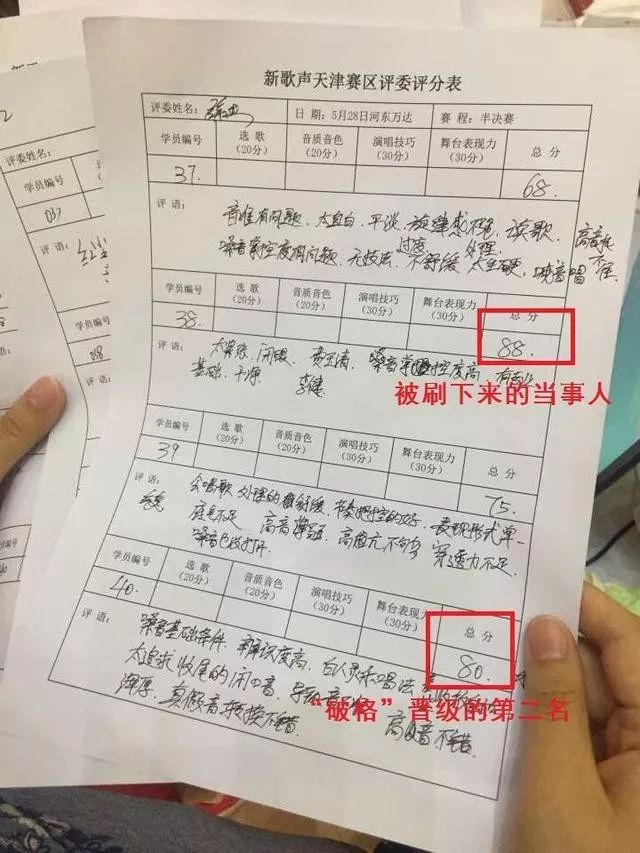 新歌声天津赛区评委评分表
评委姓名: 日 期:5月28日河东万达 赛 程:半决赛
学员编号 选 歌 (20分) 音质音色 (20分) 演唱技巧 (30分) 舞台表现力 (30分) 总 分
37. 68.
评 语: 音准有问题、太直白、平淡、旋律感不强、读歌、高音
嗓音掌控度有问题、无技法、不舒缓 太生硬、
过度、处理
学员编号 选 歌 (20分) 音质音色 (20分) 演唱技巧 (30分) 舞台表现力 (30分) 总 分
38. 88.
评 语: 太紧张、闭眼、费玉清、嗓音掌控度高、有专业
基础、干净、李健
被刷下来的当事人
学员编号 选 歌 (20分) 音质音色 (20分) 演唱技巧 (30分) 舞台表现力 (30分) 总 分
39 75.
评 语: 会唱歌 处理的很舒缓 节奏把控的好、表现形式单一
底气不足 高音 高音 穿透力不足.
嗓音
学员编号 选 歌 (20分) 音质音色 (20分) 演唱技巧 (30分) 舞台表现力 (30分) 总 分
40. 80.
评 语: 嗓音基础条件、辨识度高、白人灵乐唱法
太追求收尾的闭口音、导致音
浑厚、真假音转换不错 高低音不错
“破格”晋级的第二名
评委姓名:
学员编号
037
评 语:
学员编号
038
评 语:
学员编号
学员编号
评 语: